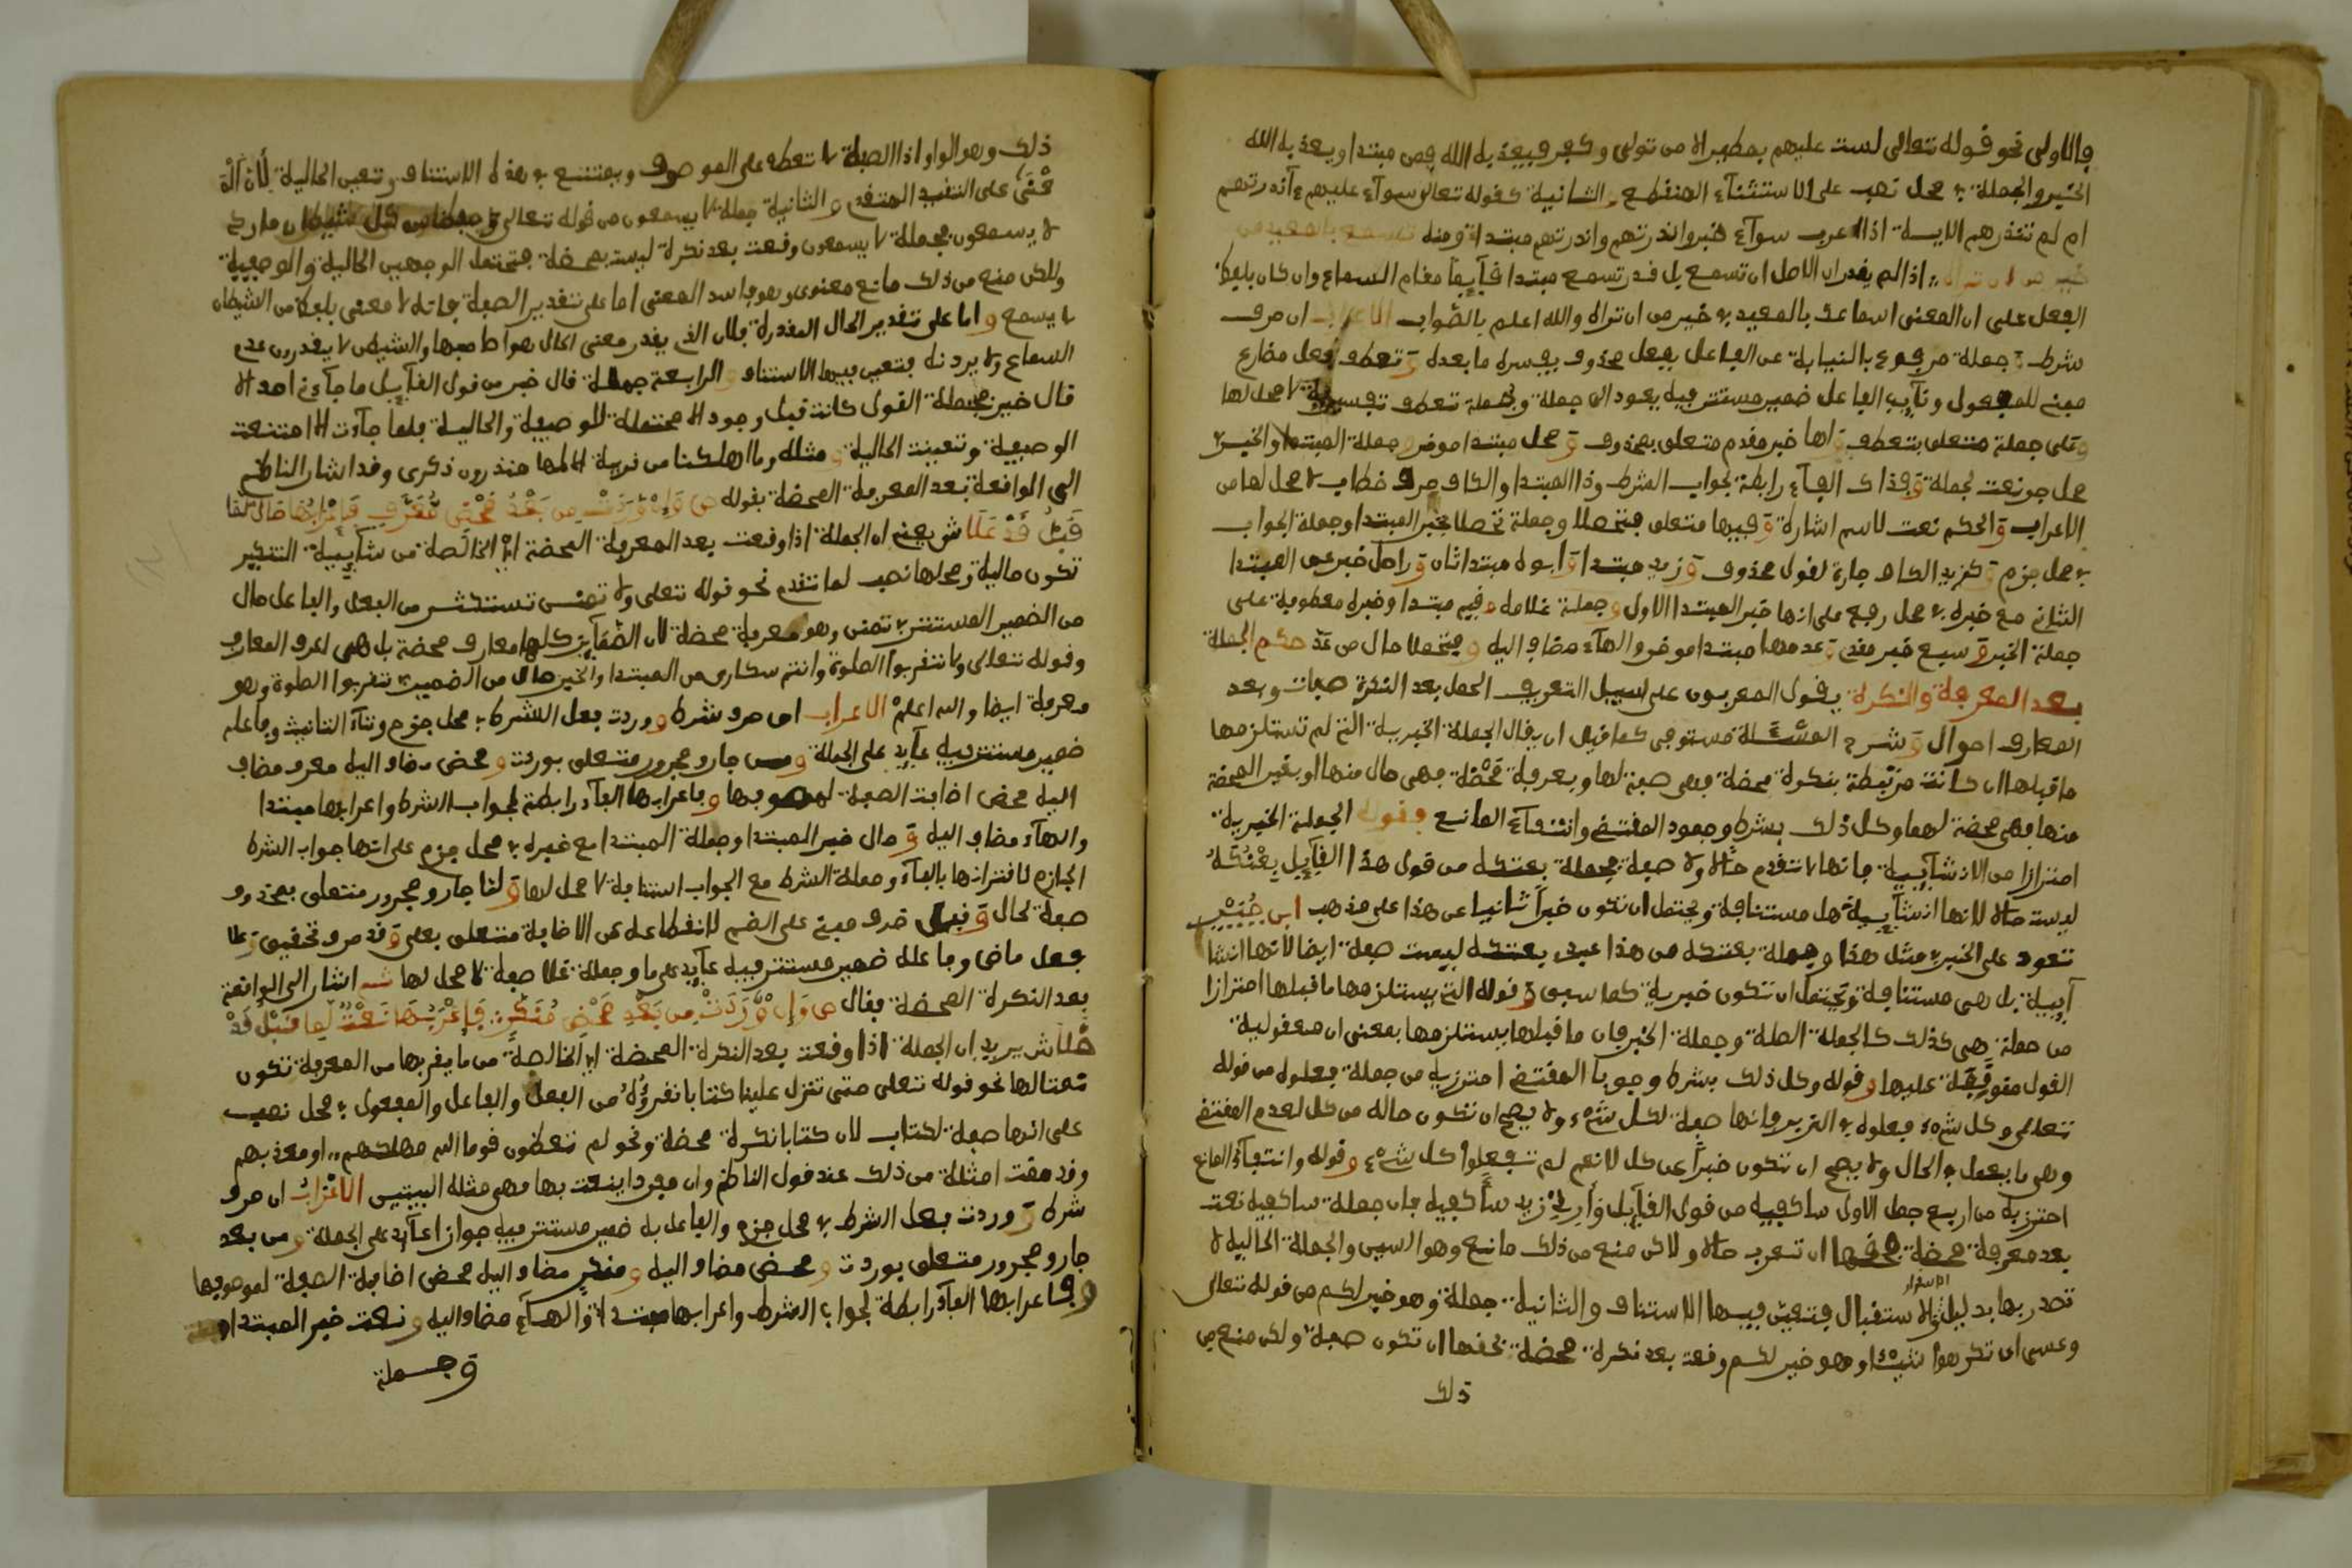 فالاولى نحو قوله تعالى لست عليهم بمصيطر الا من تولى وكفر فيعذبه الله فمن مبتدا ويعذبه الله
الخبر والجملة في محل نصب على الاستثناء المنقطع والثانية كقوله تعالى سواء عليهم ءآنذرتهم
ام لم تنذرهم الاية اذا اعرب سواء خبر وانذرتهم وانذرتهم مبتدا ومنه تسمع بالمعيدي
خير من ان تراه اذا لم يقدر ان الاصل ان تسمع بل قدر تسمع مبتدا قايما مقام السماع وان كان بلفظ
الفعل على ان المعنى اسماعك بالمعيدي خير من ان تراه والله اعلم بالصواب الاعراب ان حرف
شرط جملة مرفوع بالنيابة عن الفاعل بفعل محذوف يفسره ما بعده وتعطف فعل مضارع
مبني للمفعول ونايب الفاعل ضمير مستتر فيه يعود الى جملة وجملة تعطف تفسيرية لا محل لها
وعلى جملة متعلق بتعطف ولها خبر مقدم متعلق بمحذوف ومحل مبتدا موخر وجملة المبتدا والخبر في
محل جر نعت لجملة وفذاك الفاء رابطة لجواب الشرط وذا المبتدا والكاف حرف خطاب لا محل لها من
الاعراب والحكم نعت لاسم اشارة وفيها متعلق بتحصلا وجملة تحصلا خبر المبتدا وجملة الجواب
في محل جزم وكزيد الكاف جارة لقول محذوف وزيد مبتدا وابوه مبتدا ثان وراحل خبر عن المبتدا
الثاني مع خبره في محل رفع على انها خبر المبتدا الاول وجملة غلامه وفيم مبتدا وخبره معطوفة على
جملة الخبر وسبع خبر مقدم وعدمها مبتدا موخر والهاء مضاف اليه ومتحملا حال من عد حكم الجملة
بعد المعرفة والنكرة يقول المعربون على سبيل التعريف الجمل بعد النكرة صفات وبعد
المعارف احوال وشرح المسئلة مستوفى كما قيل ان يقال الجملة الخبرية التي لم تستلزمها
ما قبلها ان كانت مرتبطة بنكرة محضة فهي صفة لها وبعرفة محضة فهي حال منها او بغير المحضة
منها فهي محضة لهما وكل ذلك بشرط وجود المقتضي وانتفاء المانع وقوله الجملة الخبرية
احترازا من الانشايية فانها لا تتقدم حالا ولا صفة فجملة بعتكه من قول هذا القايل بعتكه
ليست حالا لانها انشايية هل مستنافة ويحتمل ان تكون خبرا ثانيا عن هذا على مذهب ابي
تعود على الخبر مثل هذا وجملة بعتكه من هذا عبد بعتكه ليست صفة ايضا لانها انشا
ايية بل هي مستنافة ويحتمل ان تكون خبرية كما سبق وقوله التي يستلزمها ما قبلها احترازا
من جملة هي كذلك كالجملة الصلة وجملة الخبر فان ما قبلها يستلزمها بمعنى ان معقولية
القول متوقفة عليها وقوله وكل ذلك بشرط وجوبا المقتضي احترز به من جملة فعلوه من قوله
تعالى وكل شيء فعلوه في الزبر فانها صفة لكل شيء ولا يصح ان تكون حاله من كل لعدم المقتضي
وهي ما يعمل في الحال ولا يصح ان تكون خبرا عن كل لانهم لم يفعلوا كل شيء وقوله وانتفاء المانع
احترز به من اربع جمل الاولى ساكفيه من قول القايل زيد ساكفيه فان جملة ساكفيه نعت
بعد معرفة محضة فحقها ان تعرب حالا ولاكن منع من ذلك مانع وهو السين والجملة الحالية لا
تصدر بها بدليل الاستقبال فتعين فيها الاستناف والثانية جملة وهو خير لكم من قوله تعالى
وعسى ان تكرهوا شيئا وهو خير لكم وقعت بعد نكرة محضة فحقها ان تكون صفة ولكن منع من
ذلك
ذلك وهو الواو اذ الصفة لا تعطف على الموصوف ويمتنع في هذه الاستناف وتعين الحالية
على التقييد المتقدم والثانية جملة لا يسمعون من قوله تعالى وحفظا من كل شيطان مارد
لا يسمعون فجملة لا يسمعون وقعت بعد نكرة ليست بمحضة فتحتمل الوجهين الحالية والوصفية
ولكن منع من ذلك مانع معنوي وهو فاسد المعنى اما على تقدير الصفة فانه لا معنى بلفظ من الشيطان
لا يسمع واما على تقدير الحال المقدرة فلان الذي يقدر معنى الحال هو صاحبها والشيطان لا يقدرون عدم
السماع ولا يردنه فتعين فيها الاستناف والرابعة جملة قال خير من قول القايل ما جاءني احد الا
قال خيرا فجملة القول كانت قبل وجود الا محتملة للوصفية والحالية فلما جاءت الا امتنعت
الوصفية وتعينت الحالية ومثله وما اهلكنا من قرية الا لها منذرون ذكرى وقد اشار الناظم
الى الواقعة بعد المعرفة المحضة بقوله ص وان وردت من بعد محض معرف فاعرابها حال لما
قبل قد علا ش يعني ان الجملة اذا وقعت بعد المعرفة المحضة اي الخالصة من شايبة التنكير
تكون حالية ومحلها نصب لما تقدم نحو قوله تعلى ولا تمنن تستكثر من الفعل والفاعل حال
من الضمير المستتر في تمنن وهو معرفة محضة لان الضماير كلها معارف محضة بل هي اعرف المعارف
وقوله تعالى ولا تقربوا الصلوة وانتم سكارى من المبتدا والخبر حال من الضمير في تقربوا الصلوة وهو
معرفة ايضا والله اعلم الاعراب ان حرف شرط ووردت فعل الشرط في محل جزم وتاء التانيث وفاعله
ضمير مستتر فيه عايد على الجملة ومن جار ومجرور متعلق بوردت ومحض مضاف اليه معرف مضاف
اليه محض اضافة الصفة لموصوفها وفاعرابها الفاء رابطة لجواب الشرط واعرابها مبتدا
والهاء مضاف اليه وحال خبر المبتدا وجملة المبتدا مع خبره في محل جزم على انها جواب الشرط
الجازم لاقترانها بالفاء وجملة الشرط مع الجواب استنافة لا محل لها ولما جار ومجرور متعلق بمحذوف
صفة لحال وقبل ظرف مبني على الضم لانقطاعه عن الاضافة متعلق بعلى وقد حرف تحقيق وعلا
فعل ماضي وفاعله ضمير مستتر فيه عايد على ما وجملة علا صفة لا محل لها ش اشار الى الواقعة
بعد النكرة المحضة فقال ص وان وردت من بعد محض منكر فاعربها نعت لما قبل قد
خلا ش يريد ان الجملة اذا وقعت بعد النكرة المحضة اي الخالصة من ما يقربها من المعرفة تكون
نعتا لها نحو قوله تعلى حتى تنزل علينا كتابا نقرؤه من الفعل والفاعل والمفعول في محل نصب
على انها صفة لكتاب لان كتابا نكرة محضة ونحو لم تعظون قوما الله مهلكهم او معذبهم
وقد مضت امثلة من ذلك عند قول الناظم وان مفردا ينعت بها فهي مثله البيتين الاعراب ان حرف
شرط ووردت فعل الشرط في محل جزم والفاعل به ضمير مستتر فيه جوازا عايد على الجملة ومن بعد
جار ومجرور متعلق بوردت ومحض مضاف اليه ومنكر مضاف اليه محض اضافة الصفة لموصوفها
وفاعرابها الفاء رابطة لجواب الشرط واعرابها مبتدا والهاء مضاف اليه ونعت خبر المبتدا
وجملة